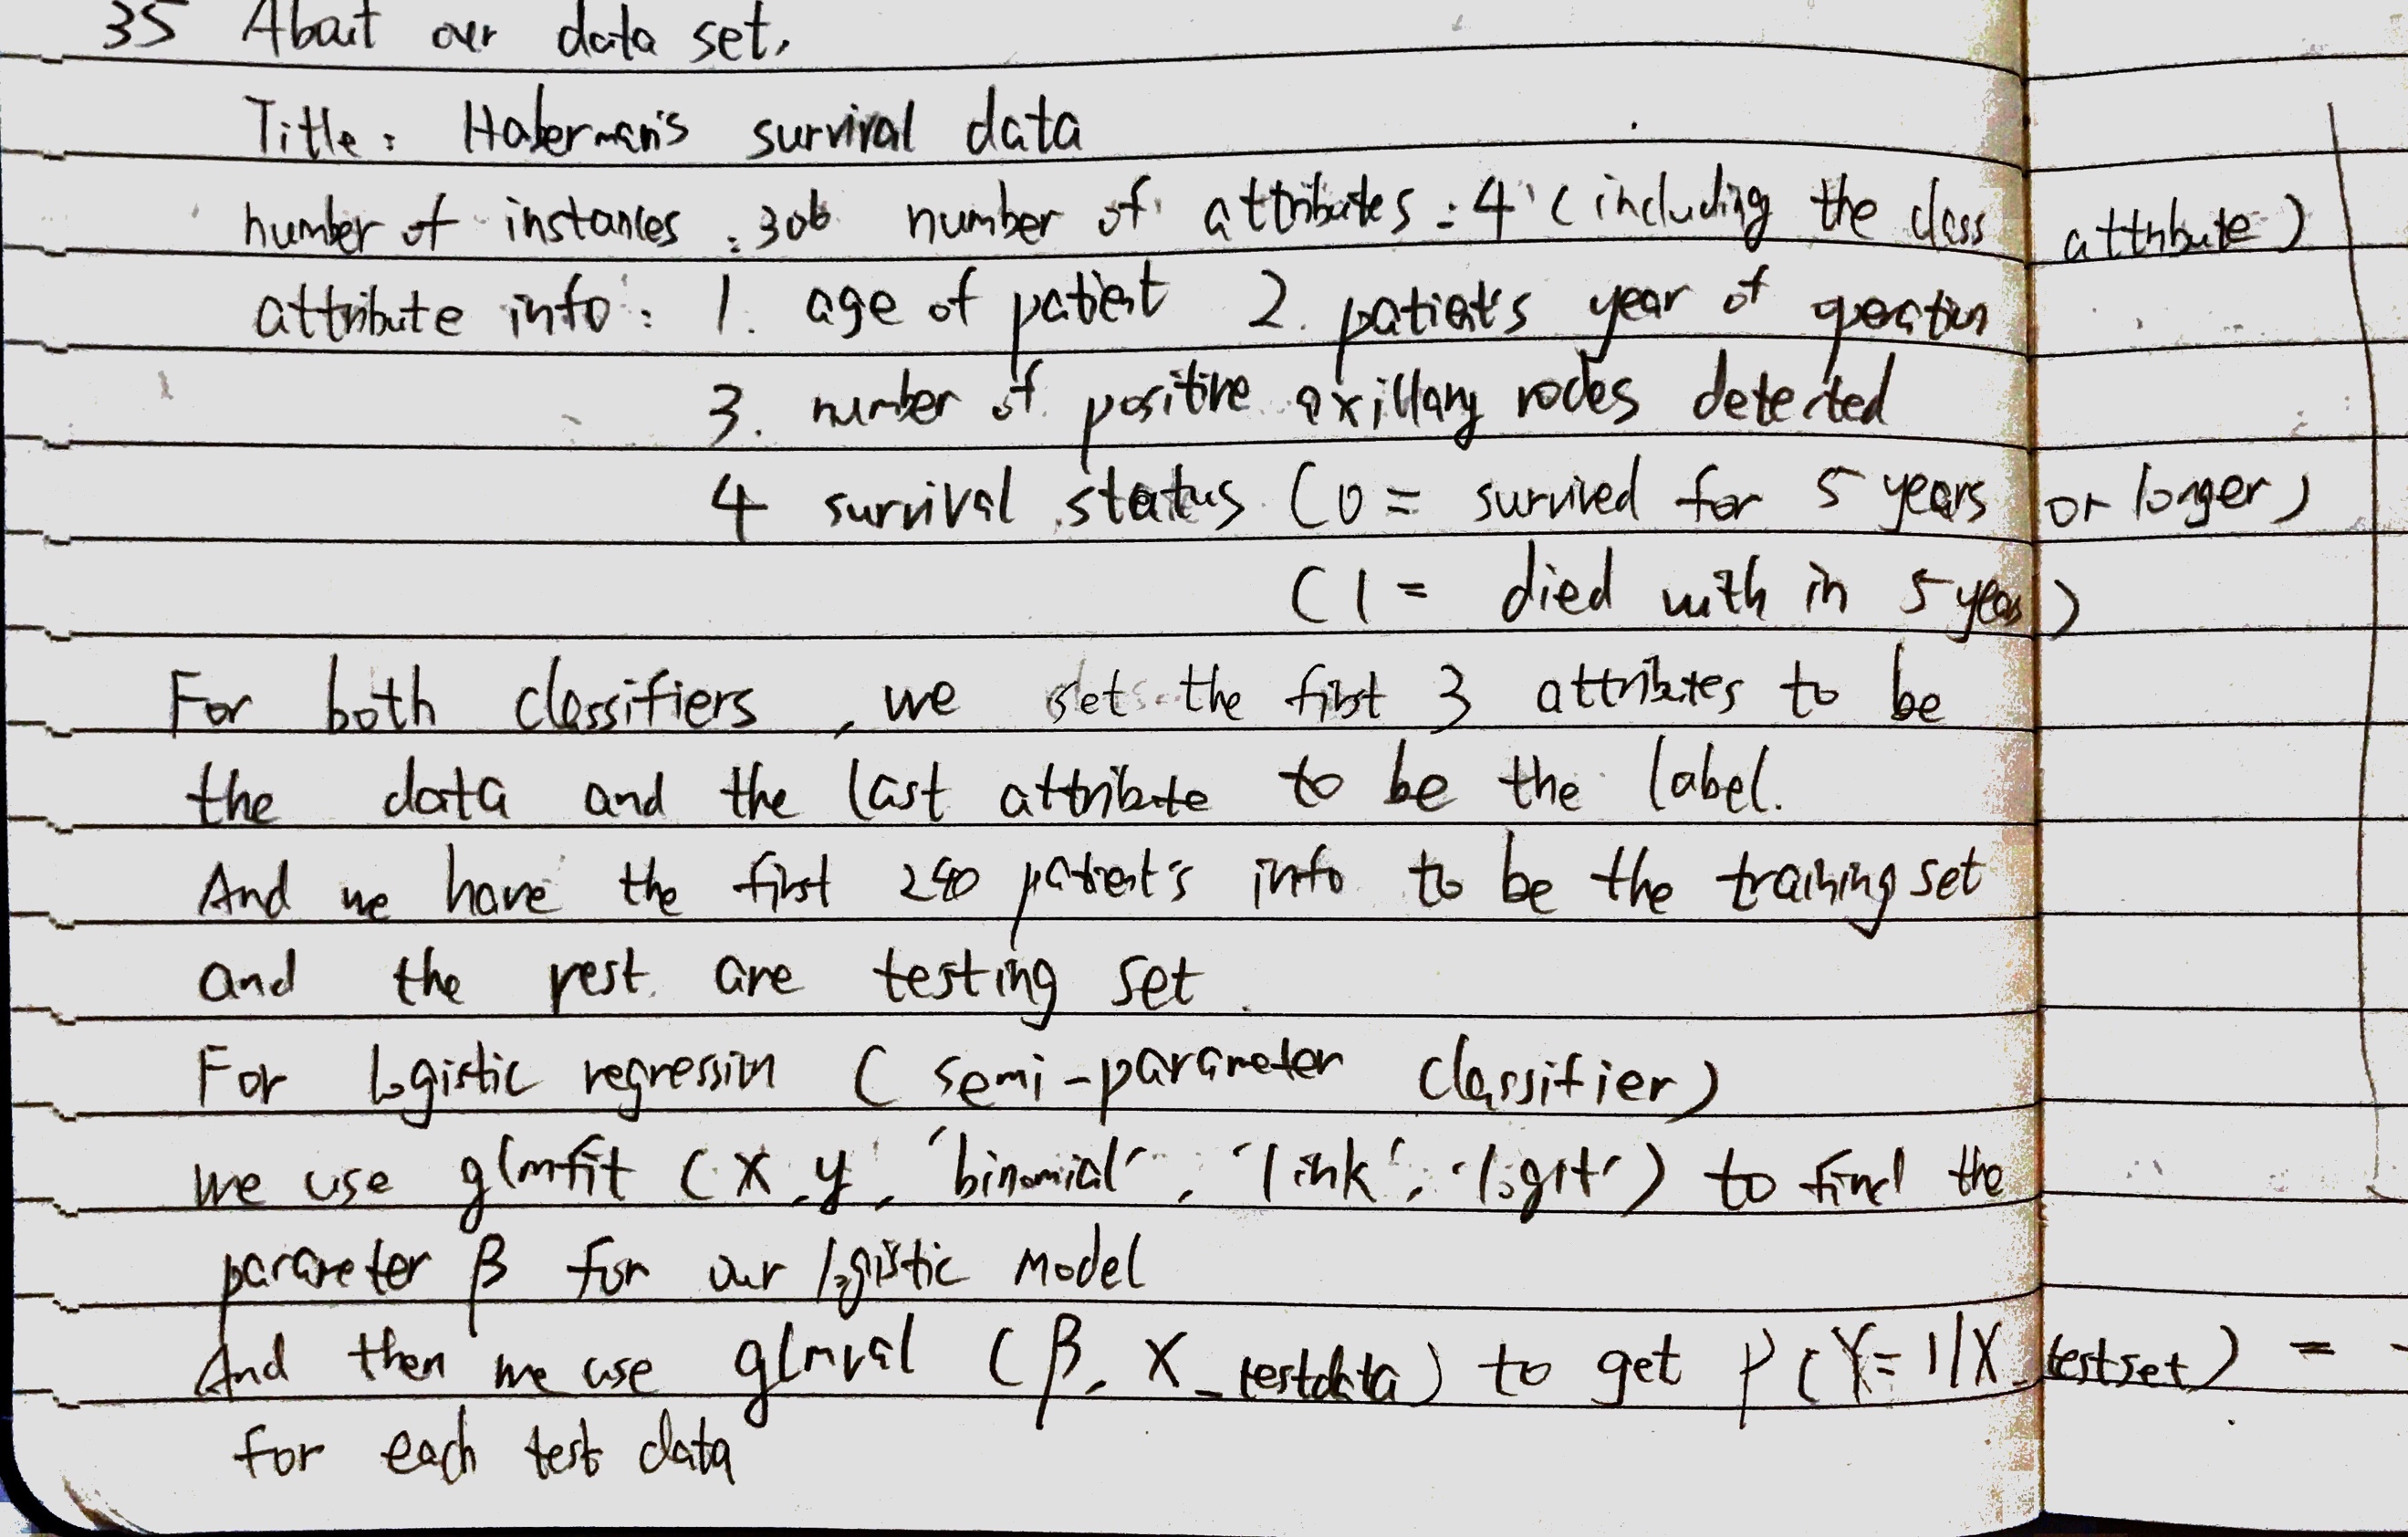 35 About our data set.
Title: Haberman's survival data
number of instances: 306 number of attributes: 4 (including the class attribute)
attribute info: 1. age of patient 2. patient's year of operation
3. number of positive axillary nodes detected
4 survival status (0 = survived for 5 years or longer)
(1 = died with in 5 years)
For both classifiers, we set the first 3 attributes to be
the data and the last attribute to be the label.
And we have the first 240 patient's info to be the training set
and the rest are testing set.
For logistic regression (semi-parameter classifier)
we use glmfit (X, y, 'binomial', 'link', 'logit') to find the
parameter β for our logistic model
And then we use glmval (β, X_testdata) to get P(Y=1|X_testset) =
for each test data